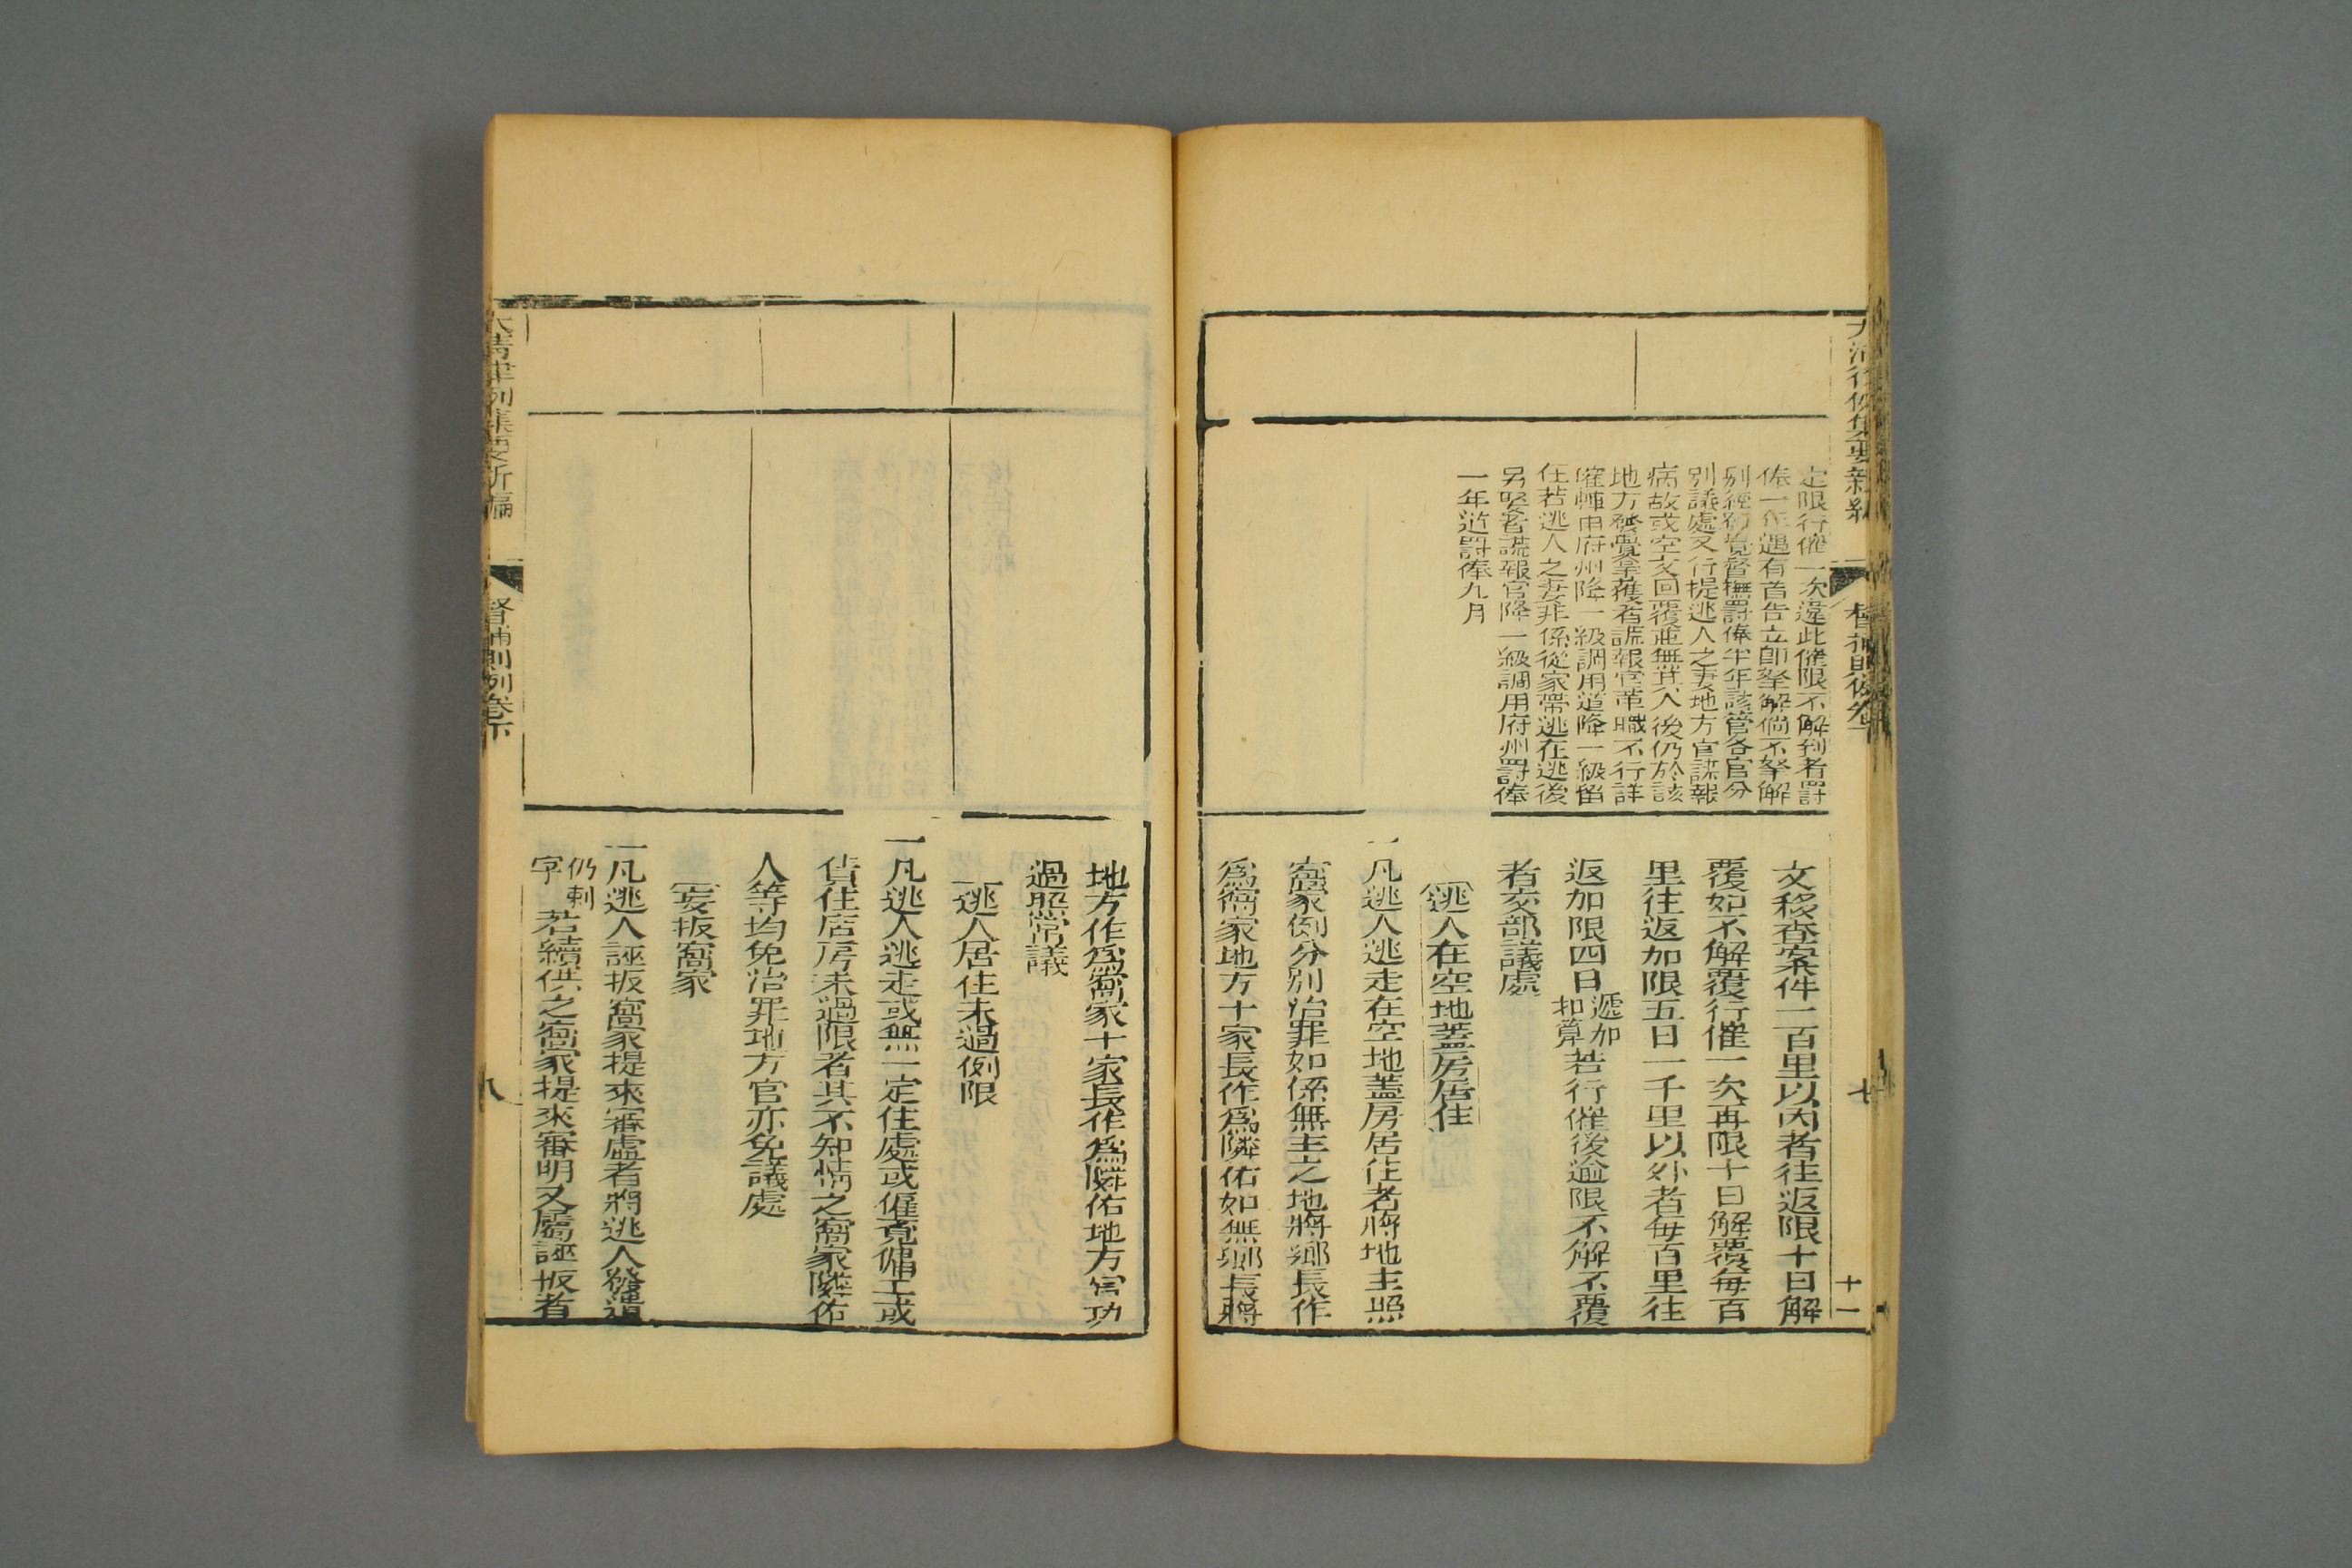 大清律例集要新編
督捕則例卷下
七
十一
定限行催一次違此催限不解到者罰
俸一年遇有首告立即拏解倘不拏解
別經發覺督撫罰俸半年該管各官分
別議處又行提逃人之妻地方官謊報
病故或空文回覆並無其人後仍於該
地方發覺拿獲者謊報官革職不行詳
確轉申府州降一級調用道降一級留
任若逃人之妻非係從家帶逃在逃後
另娶者謊報官降一級調用府州罰俸
一年道罰俸九月
文移查案件一百里以內者往返限十日解
覆如不解覆行催一次再限十日解覆每百
里往返加限五日一千里以外者每百里往
返加限四日遞加扣算若行催後逾限不解不覆
者交部議處
逃人在空地蓋房居住
一凡逃人逃走在空地蓋房居住者將地主照
窩家例分別治罪如係無主之地將鄉長作
爲窩家地方十家長作爲隣佑如無鄉長將
地方作爲窩家十家長作爲隣佑地方官功
過照常議
逃人居住未過例限
一凡逃人逃走或無一定住處或僱覓傭工或
賃住店房未過限者其不知情之窩家隣佑
人等均免治罪地方官亦免議處
妄扳窩家
一凡逃人誣扳窩家提來審虛者將逃人發遣
仍刺字若續供之窩家提來審明又屬誣扳者
大清律例集要新編
督捕則例卷下
八